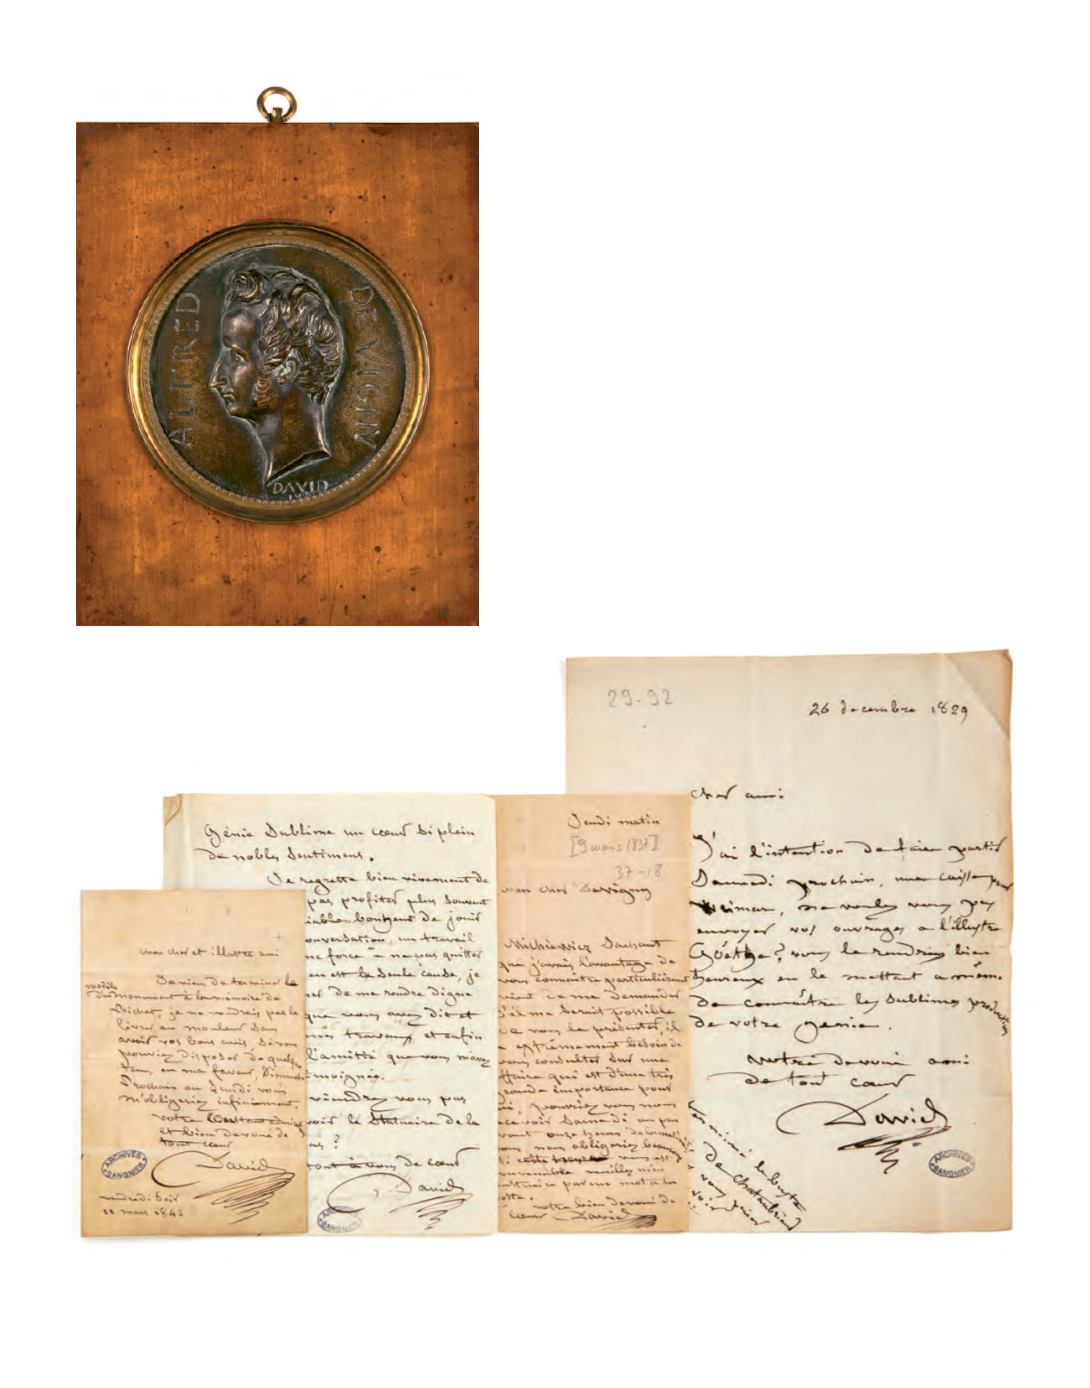 ALFRED
DE VIGNY
DAVID
29-92
26 decembre 1829
cher ami
J'ai l'intention de faire partir
Samedi prochain, une caisse pour
Weimar, ne voulez vous pas
envoyer vos ouvrages a l'illustre
Goëthe? vous le rendrez bien
heureux en le mettant a même
de connaître les sublimes productions
de votre génie.
votre devoué ami
de tout cœur
David
le buste
de Chateaubriand
ARCHIVES
SANGNIER
Jeudi matin
[9 mars 1837]
37-18
mon cher Devigny
Mickiewicz sachant
que j'avais l'avantage de
vous connaitre particulièrement
vient de me demander
s'il me serait possible
de vous le présenter, il
a extrêmement besoin de
vous consulter sur une
affaire qui est d'une très
grande importance pour
lui, pourriez vous nous
recevoir Samedi un peu
avant onze heures
vous nous obligeriez beaucoup
si vous est
convenable veuillez m'en
instruire par un mot a la
poste.
votre bien devoué de
cœur David
génie sublime un cœur si plein
de nobles sentimens.
Je regrette bien vivement de
pas profiter plus souvent
bonheur de jouir
conversation, un travail
me force à ne pas quitter
en est la seule cause, je
de me rendre digne
que vous avez dit et
mes travaux et enfin
l'amitié que vous m'avez
témoignée.
viendrez vous pas
voir le Statuaire de la
?
tout à vous de cœur
David
ARCHIVES
SANGNIER
mon cher et illustre ami
Je viens de terminer le
modèle
du monument à la mémoire de
Bichat, je ne voudrais pas le
livrer au mouleur sans
avoir vos bons avis, si vous
pouviez disposer de quelque
tems, en ma faveur, Dimanche
prochain ou Lundi vous
m'obligeriez infiniment.
votre
et bien devoué de
tout cœur
David
ARCHIVES
SANGNIER
vendredi soir
mars 1842